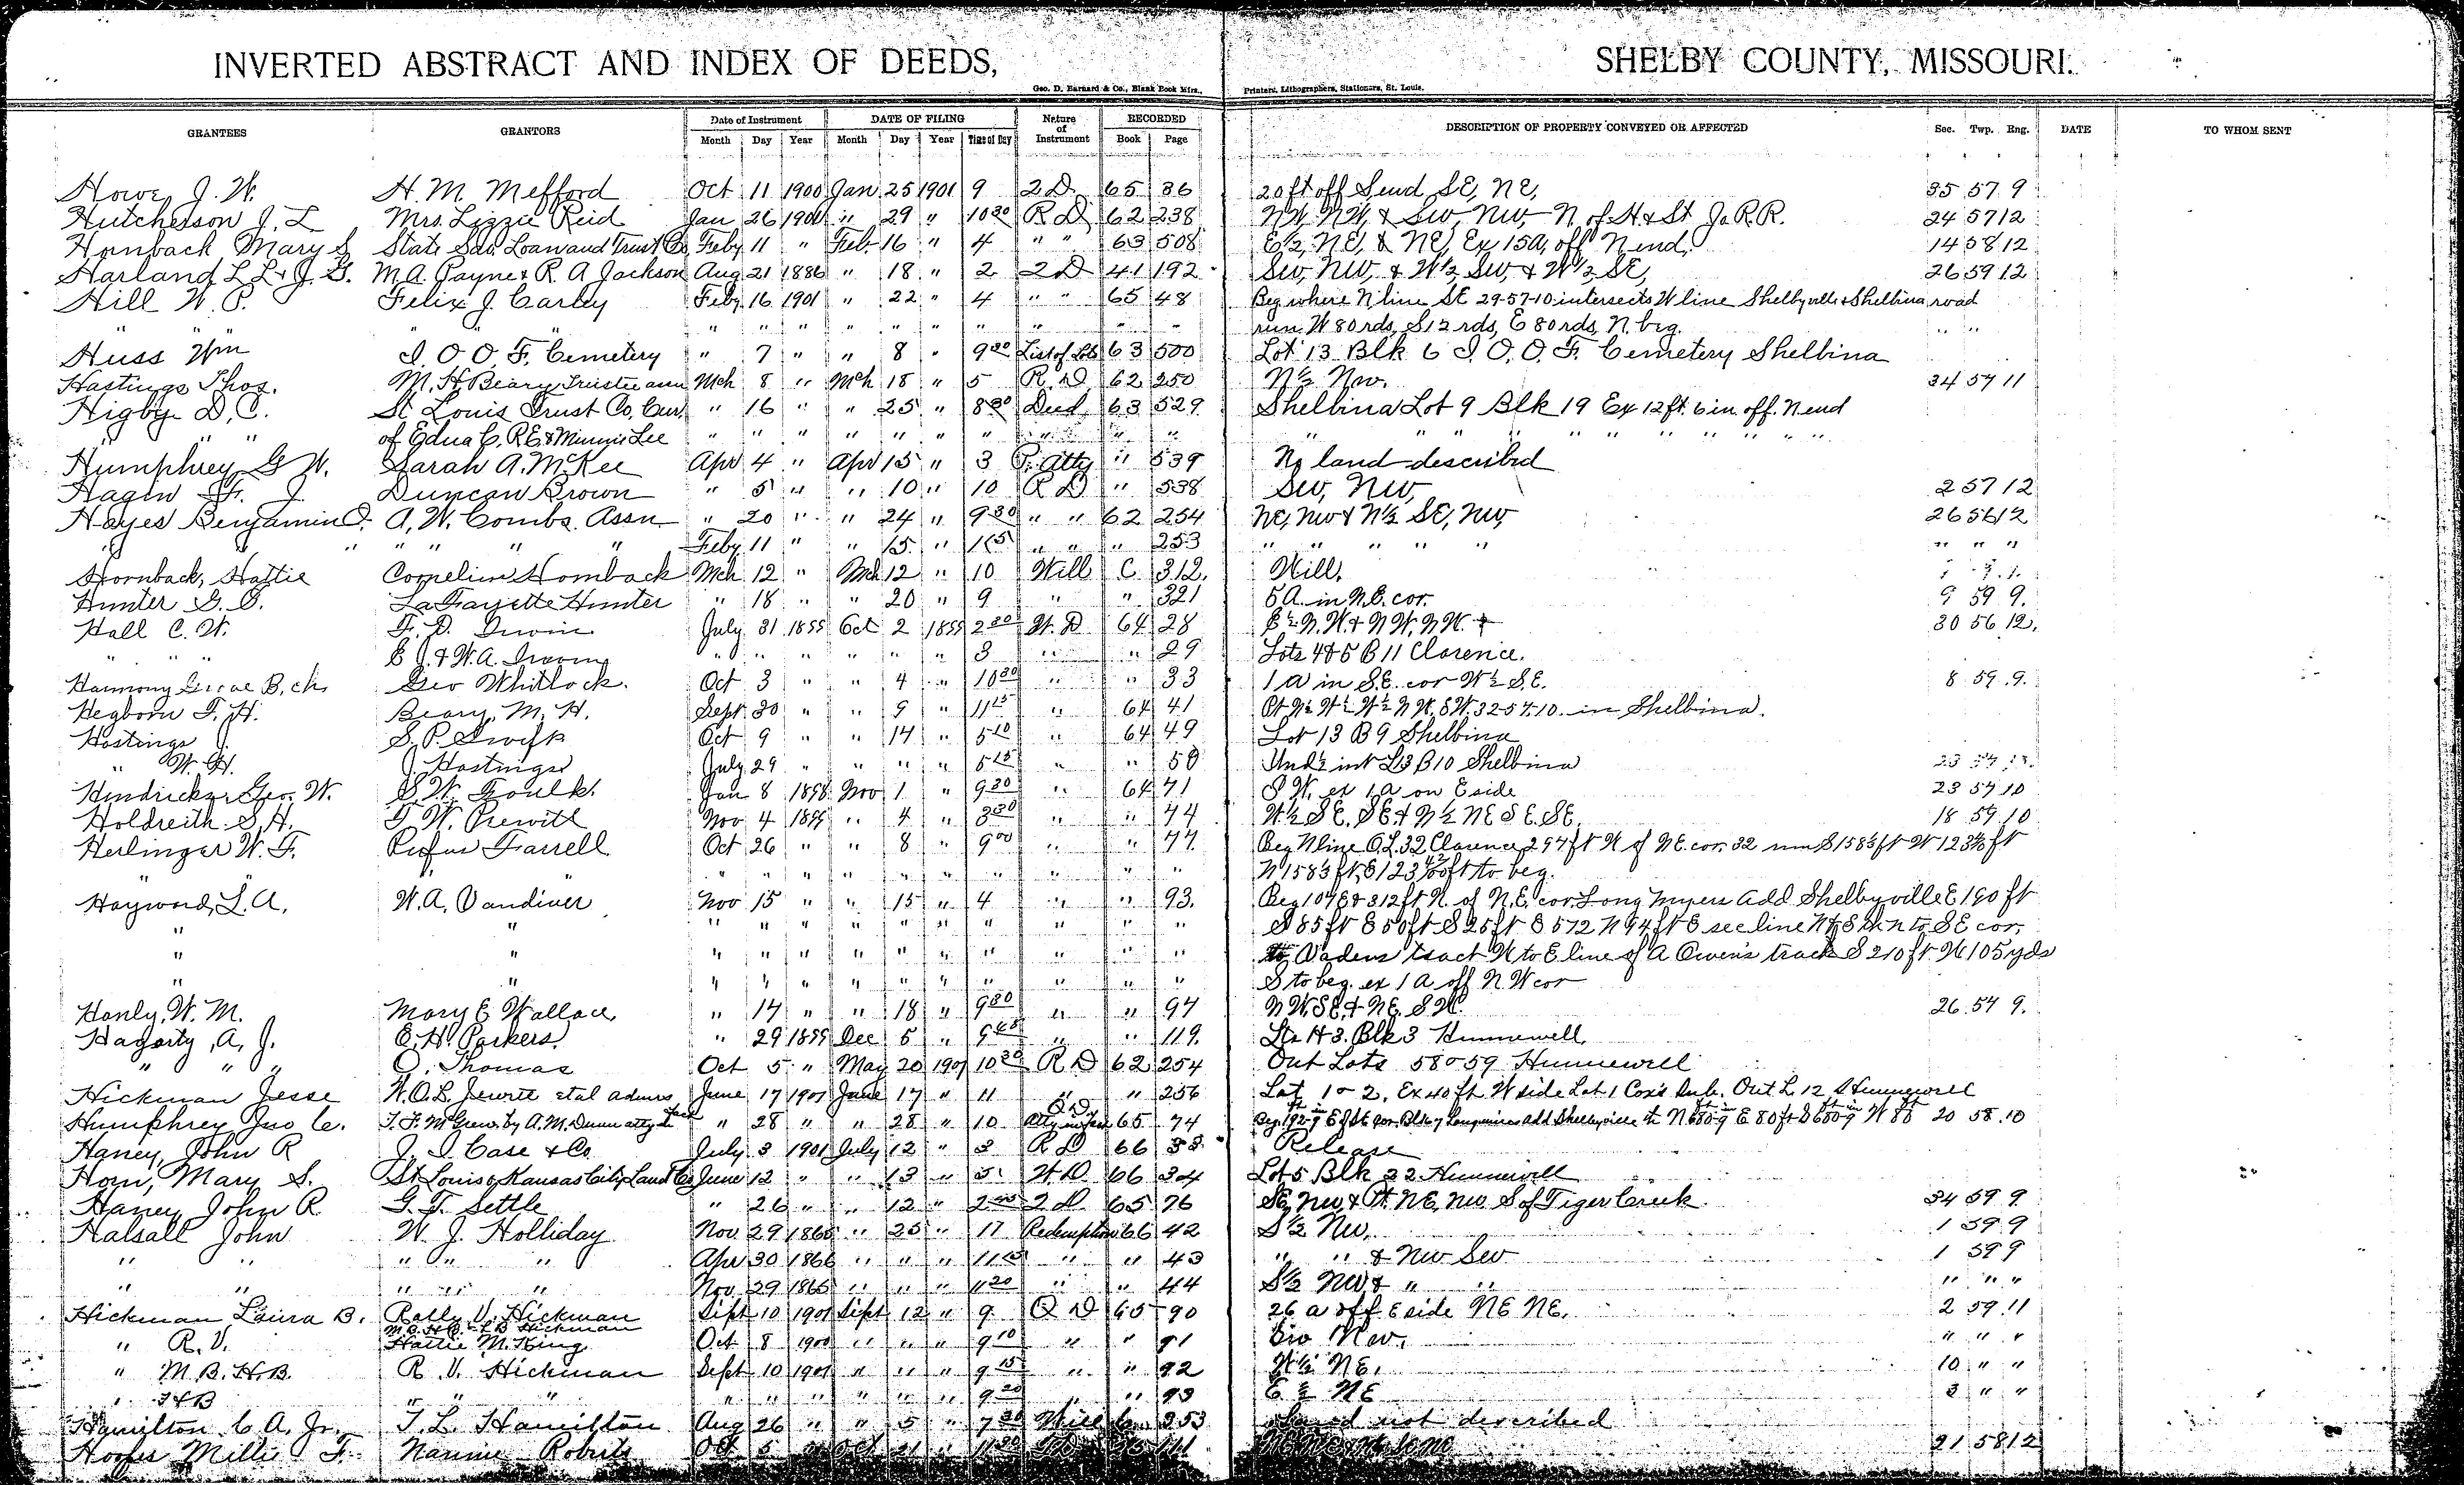 INVERTED ABSTRACT AND INDEX OF DEEDS, SHELBY COUNTY, MISSOURI.
Geo. D. Barnard & Co., Blank Book Mfrs., Printers, Lithographers, Stationers, St. Louis.
GRANTEES GRANTORS Date of Instrument DATE OF FILING Nature of Instrument RECORDED DESCRIPTION OF PROPERTY CONVEYED OR AFFECTED Sec. Twp. Rng. DATE TO WHOM SENT
Month Day Year Month Day Year Time of Day Book Page
Howe, J. W. H. M. Mefford Oct 11 1900 Jan 25 1901 9 2 D 65 36 20 ft off S end SE, NE, 35 57 9
Hutcherson J. L Mrs. Lizzie Reid Jan 26 1901 " 29 " 10 30 R D 62 238 NW, NW, & SW, NW, N of H & St Jo R.R. 24 57 12
Hornback Mary S State Sav. Loan and Trust Co Feby 11 " Feb. 16 " 4 " " 63 508 E½, NE, & NE, Ex 15A, off N end. 14 58 12
Harland L L & J. G. M.A. Payne & R. A Jackson Aug 21 1886 " 18 " 2 2 D 41 192 SW, NW, & W½, SW, & W½, SE, 26 59 12
Hill W. P. Felix J. Carley Feby 16 1901 " 22 " 4 " " 65 48 Beg where N line SE 29-57-10 intersects W line Shelbyville & Shelbina road
" " " " " " " " " " " " " " run W 80 rds, S 12 rds, E 80 rds, N. beg. " "
Huss Wm I. O. O. F. Cemetery " 7 " " 8 " 9 30 List of Lots 63 500 Lot 13 Blk 6 I. O. O. F. Cemetery Shelbina
Hastings Thos. M. H Beary Trustee assn Mch 8 " Mch 18 " 5 R. D 62 250 N½ NW. 34 57 11
Higby D. C. St Louis Trust Co, Cur. " 16 " " 25 " 8 30 Deed 63 529 Shelbina Lot 9 Blk 19 Ex 12 ft. 6 in off. N end
" " " of Edna C, R E & Minnie Lee " " " " " " " " " " " " " " " " "
Humphrey G W. Sarah A. McKee Apr 4 " Apr 15 " 3 P. Atty " 539 No land described
Hagin F. J. Duncan Brown " 5 " " 10 " 10 R D " 538 SW, NW, 2 57 12
Hayes Benjamin O. A. W. Combs. Assn " 20 " " 24 " 9 30 " " 62 254 NE, NW & N½ SE, NW, 26 56 12
" " " " " Feby 11 " " 15 " 1 05 " " " 253 " " " " " " " "
Hornback, Hattie Cornelius Hornback Mch 12 " Mch 12 " 10 Will C 312. Will.
Hunter G. O. LaFayette Hunter " 18 " " 20 " 9 " " 321 5 A. in N.E. cor. 9 59 9.
Hall C. W. F. D. Irwin July 31 1899 Oct 2 1899 2 30 W. D 64 28 E½ N. W. & N W. N W. 30 56 12.
" " E J. & W. A. Irwin " " " " " " 3 " " 29 Lots 4 & 5 B 11 Clarence.
Harmony Grove B. ch. Geo Whitlock. Oct 3 " " 4 " 10 30 " " 33 1 A in S.E. cor W½ S.E. 8 59 9.
Hegborn F. H. Beary, M. H. Sept 30 " " 9 " 11 15 " 64 41 Pt N½ W½ W½ N W. S W. 32 57. 10. in Shelbina.
Hastings J. S. P. Swift Oct 9 " " 14 " 5 10 " 64 49 Lot 13 B 9 Shelbina
" W. H. J. Hastings July 29 " " " " 5 15 " " 50 Und½ int L13 B10 Shelbina
Hendricks, Geo. W. S W. Foulk. Jan 8 1898 Nov 1 " 9 30 " 64 71 S W. ex 1 A on E side 23 57 10
Holdreith S. H. F. W. Prewitt Nov 4 1899 " 4 " 3 30 " " 74 W½ S E. S E. & N½ N E S E. SE. 18 59 10
Herlinger W. F. Rufus Farrell Oct 26 " " 8 " 9 00 " " 77. Beg N line O. L. 32 Clarence 297 ft W of N E. cor. 32 run S 158½ ft W 123 ft
" " " " " " " " " " N 158½ ft E 123 ft to beg.
Hayward, L. A. W. A. Vandiver Nov 15 " " 15 " 4 " " 93. Beg 1078 & 312 ft N. of N. E. cor. Long Myers Add Shelbyville E 190 ft
" " " " " " " " " " " " S 85 ft E 50 ft S 25 ft E 572 N 94 ft E sec line N to SE cor,
" " " " " " " " " " " " Vadens tract W to E line of A Owen's track S 210 ft W 105 yds
" " " " " " " " " " " " S to beg. ex 1 A off N. W cor
Hanly, W. M. Mary E Wallace " 14 " " 18 " 9 30 " " 94 N W. S E. & N E. S W. 26. 57 9.
Hagarty, A. J. E. H. Parkers. " 29 1899 Dec 5 " " " 119. Blk 3 Hunnewell
" " " O. Thomas Oct 5 " May 20 1901 10 30 R D 62 254 Out Lots 58 & 59 Hunnewell
Hickman Jesse W. O. L. Jewett et al admrs June 17 1901 June 17 " 11 " " 256 Lot 1 & 2, Ex 40 ft. W side Lot 1 Cox's Sub. Out L 12, Hunnewell
Humphrey Jno C. T. F. McGrew by A. M. Dunn atty in fact " 28 " " 28 " 10 Q D 65 74 20 58. 10
Haney, John R J. I. Case & Co July 3 1901 July 12 " 3 R D 66 33 Release
Horn, Mary S. St Louis & Kansas City Land Co June 12 " " 13 " 5 W. D. 66 34 Lot 5 Blk 22 Hunnewell
Haney John R. G. T. Settle " 26 " " 12 " 2 2 D. 65 76 SE, NW & Pt. NE, NW S of Tiger Creek 34 59 9
Halsall John W. J. Holliday Nov 29 1865 " 25 " 11 Redemption 66 42 S½ NW. 1 59 9
" " " " " Apr 30 1866 " " " 11 15 " " 43 " " & NW SW 1 59 9
" " " " " Nov 29 1865 " " " 11 20 " " 44 S½ NW & " " " " "
Hickman Laura B. Rolly V. Hickman Sept 10 1901 Sept 12 " 9 Q D 65 90 26 a off E side NE NE. 2 59 11
" R. V. Hattie M. King Oct 8 1900 " " " 9 10 " " 91 " " "
" M. B. H. B. R. V. Hickman Sept 10 1901 " " " 9 15 " " 92 W½ NE. 10 " "
" " " " " " " " " " 9 20 " " 93 E½ NE 3 " "
Hamilton C. A. Jr. T. L. Hamilton Aug 26 " " 5 " 7 30 Will 353 Land not described
Hooper Millie F. Nannie Roberts Oct 5 Oct 21 21 58 12